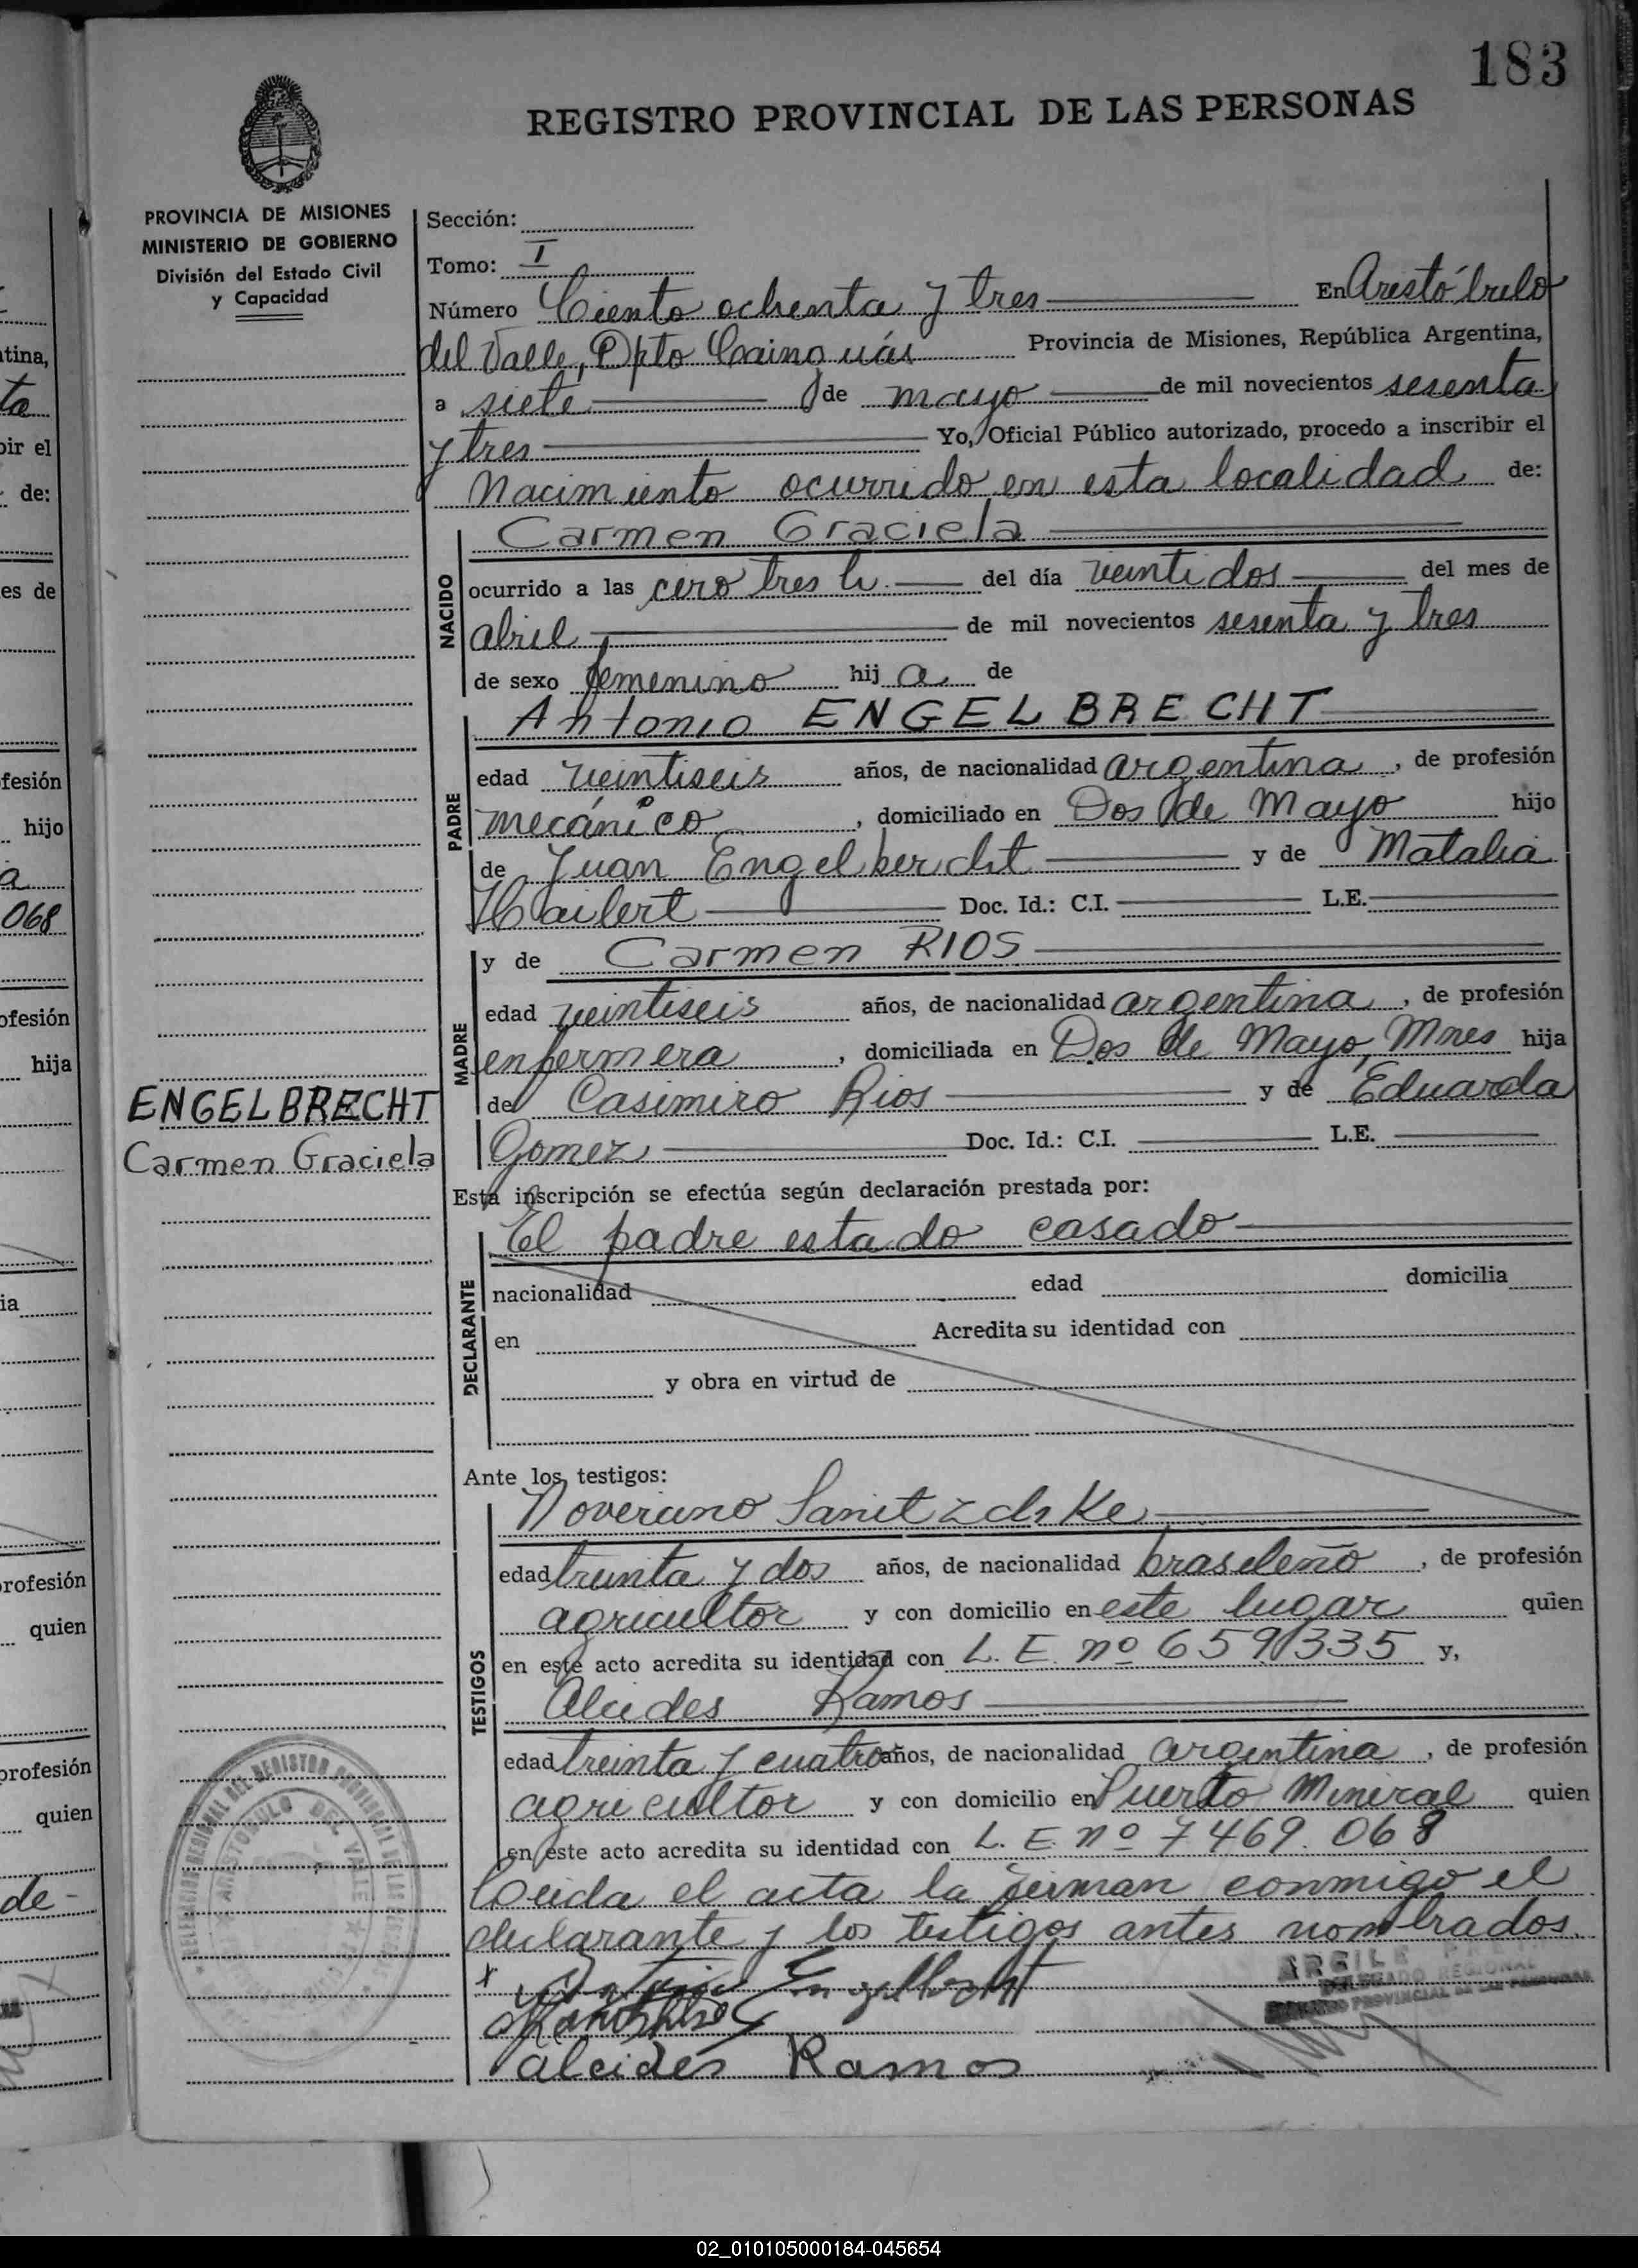 183
REGISTRO PROVINCIAL DE LAS PERSONAS
PROVINCIA DE MISIONES
MINISTERIO DE GOBIERNO
División del Estado Civil
y Capacidad
Sección:
Tomo: I
Número Ciento ochenta y tres En Aristóbulo
del Valle, Dpto Cainguás Provincia de Misiones, República Argentina,
a siete de mayo de mil novecientos sesenta
y tres Yo, Oficial Público autorizado, procedo a inscribir el
Nacimiento ocurrido en esta localidad de:
Carmen Graciela
NACIDO
ocurrido a las cero tres h. del día veintidos del mes de
abril de mil novecientos sesenta y tres
de sexo femenino hij a de
Antonio ENGELBRECHT
PADRE
edad veintiseis años, de nacionalidad argentina, de profesión
mecánico, domiciliado en Dos de Mayo hijo
de Juan Engelbercht y de Natalia
Hailert Doc. Id.: C.I. L.E.
y de Carmen RIOS
MADRE
edad veintiseis años, de nacionalidad argentina, de profesión
enfermera, domiciliada en Dos de Mayo, Mnes hija
de Casimiro Rios y de Eduarda
Gomez Doc. Id.: C.I. L.E.
ENGELBRECHT
Carmen Graciela
Esta inscripción se efectúa según declaración prestada por:
El padre estado casado
DECLARANTE
nacionalidad edad domicilia
en Acredita su identidad con
y obra en virtud de
Ante los testigos:
Noverino Sanitzchke
TESTIGOS
edad treinta y dos años, de nacionalidad brasileño, de profesión
agricultor y con domicilio en este lugar quien
en este acto acredita su identidad con L. E. nº 6591335 y,
Alcides Ramos
edad treinta y cuatro años, de nacionalidad argentina, de profesión
agricultor y con domicilio en Puerto Mineral quien
en este acto acredita su identidad con L. E. nº 7469.068
Leida el acta la firman conmigo el
declarante y los testigos antes nombrados.
x Antonio Engelbrecht
alcides Ramos
DELEGADO REGIONAL
PROVINCIAL DE LAS PERSONAS
DELEGACION REGIONAL DEL REGISTRO PROVINCIAL DE LAS PERSONAS
ARISTOBULO DEL VALLE
02_010105000184-045654